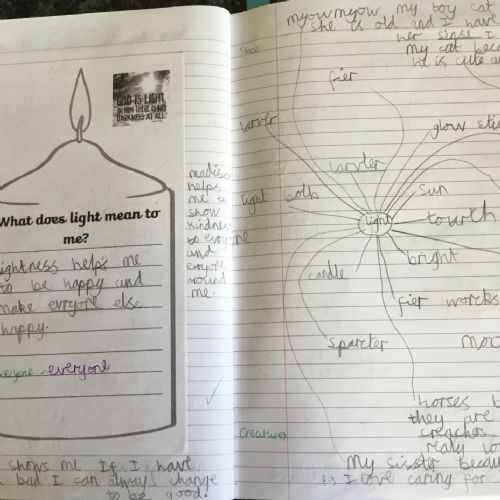 GOD IS LIGHT,
IN HIM THERE IS NO
DARKNESS AT ALL.
What does light mean to
me?
ightness helps me
to be happy and
make evryone else
happy.
everyone
everyone
helps
me to
show
kindness
to evryone
and
evryone
around
me.
shows me If I have
bad I can always change
to be good.
myowmyow my boy cat
she is old and I have
her sinse I
my cat beca
he is cute
Space
fier
glow sti
sun
light
tourch
bright
candle
fier worcks
sparcter
moo
horses b
they are
creachers
realy lo
Creatures
My sisster because
I love caring for